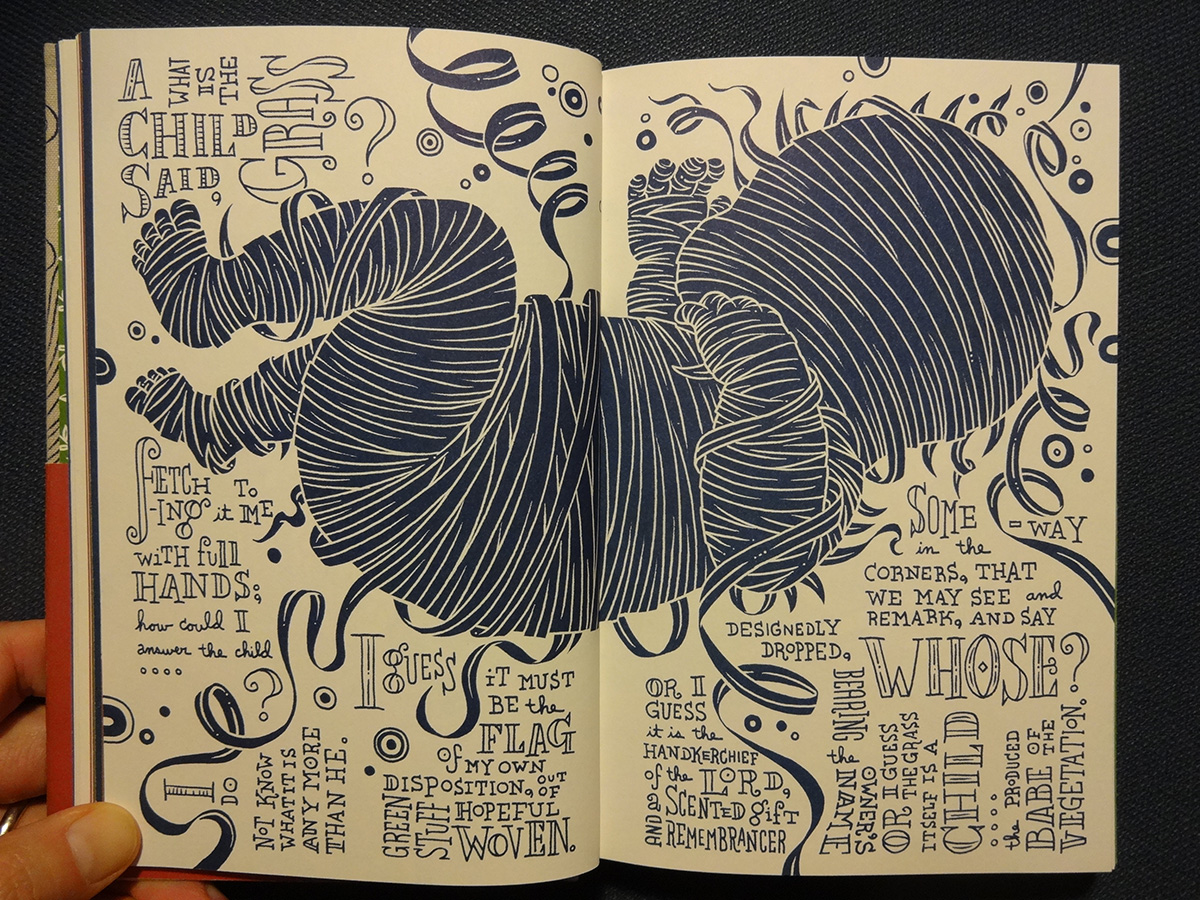 A
CHILD
SAID,
WHAT
IS
THE
GRASS
?
FETCH
-ING it TO
ME
WITH full
HANDS;
how could I
answer the child
....
?
I DO
NOT KNOW
WHAT IT IS
ANY MORE
THAN HE.
I guess
iT MUST
BE the
FLAG
of MY OWN
DISPOSITION, OUT
OF
HOPEFUL
GREEN
STUFF
WOVEN.
OR I
GUESS
it is the
HANDKERCHIEF
of the LORD,
A SCENTED gifT
AND REMEMBRANCER
DESIGNEDLY
DROPPED,
BEARING
the
OWNER'S
NAME
SOME -WAY
in the
CORNERS, THAT
WE MAY SEE and
REMARK, AND SAY
WHOSE?
OR I GUESS
THE GRASS
ITSELF IS A
CHILD
....
the PRODUCED
BABE OF
THE
VEGETATION.